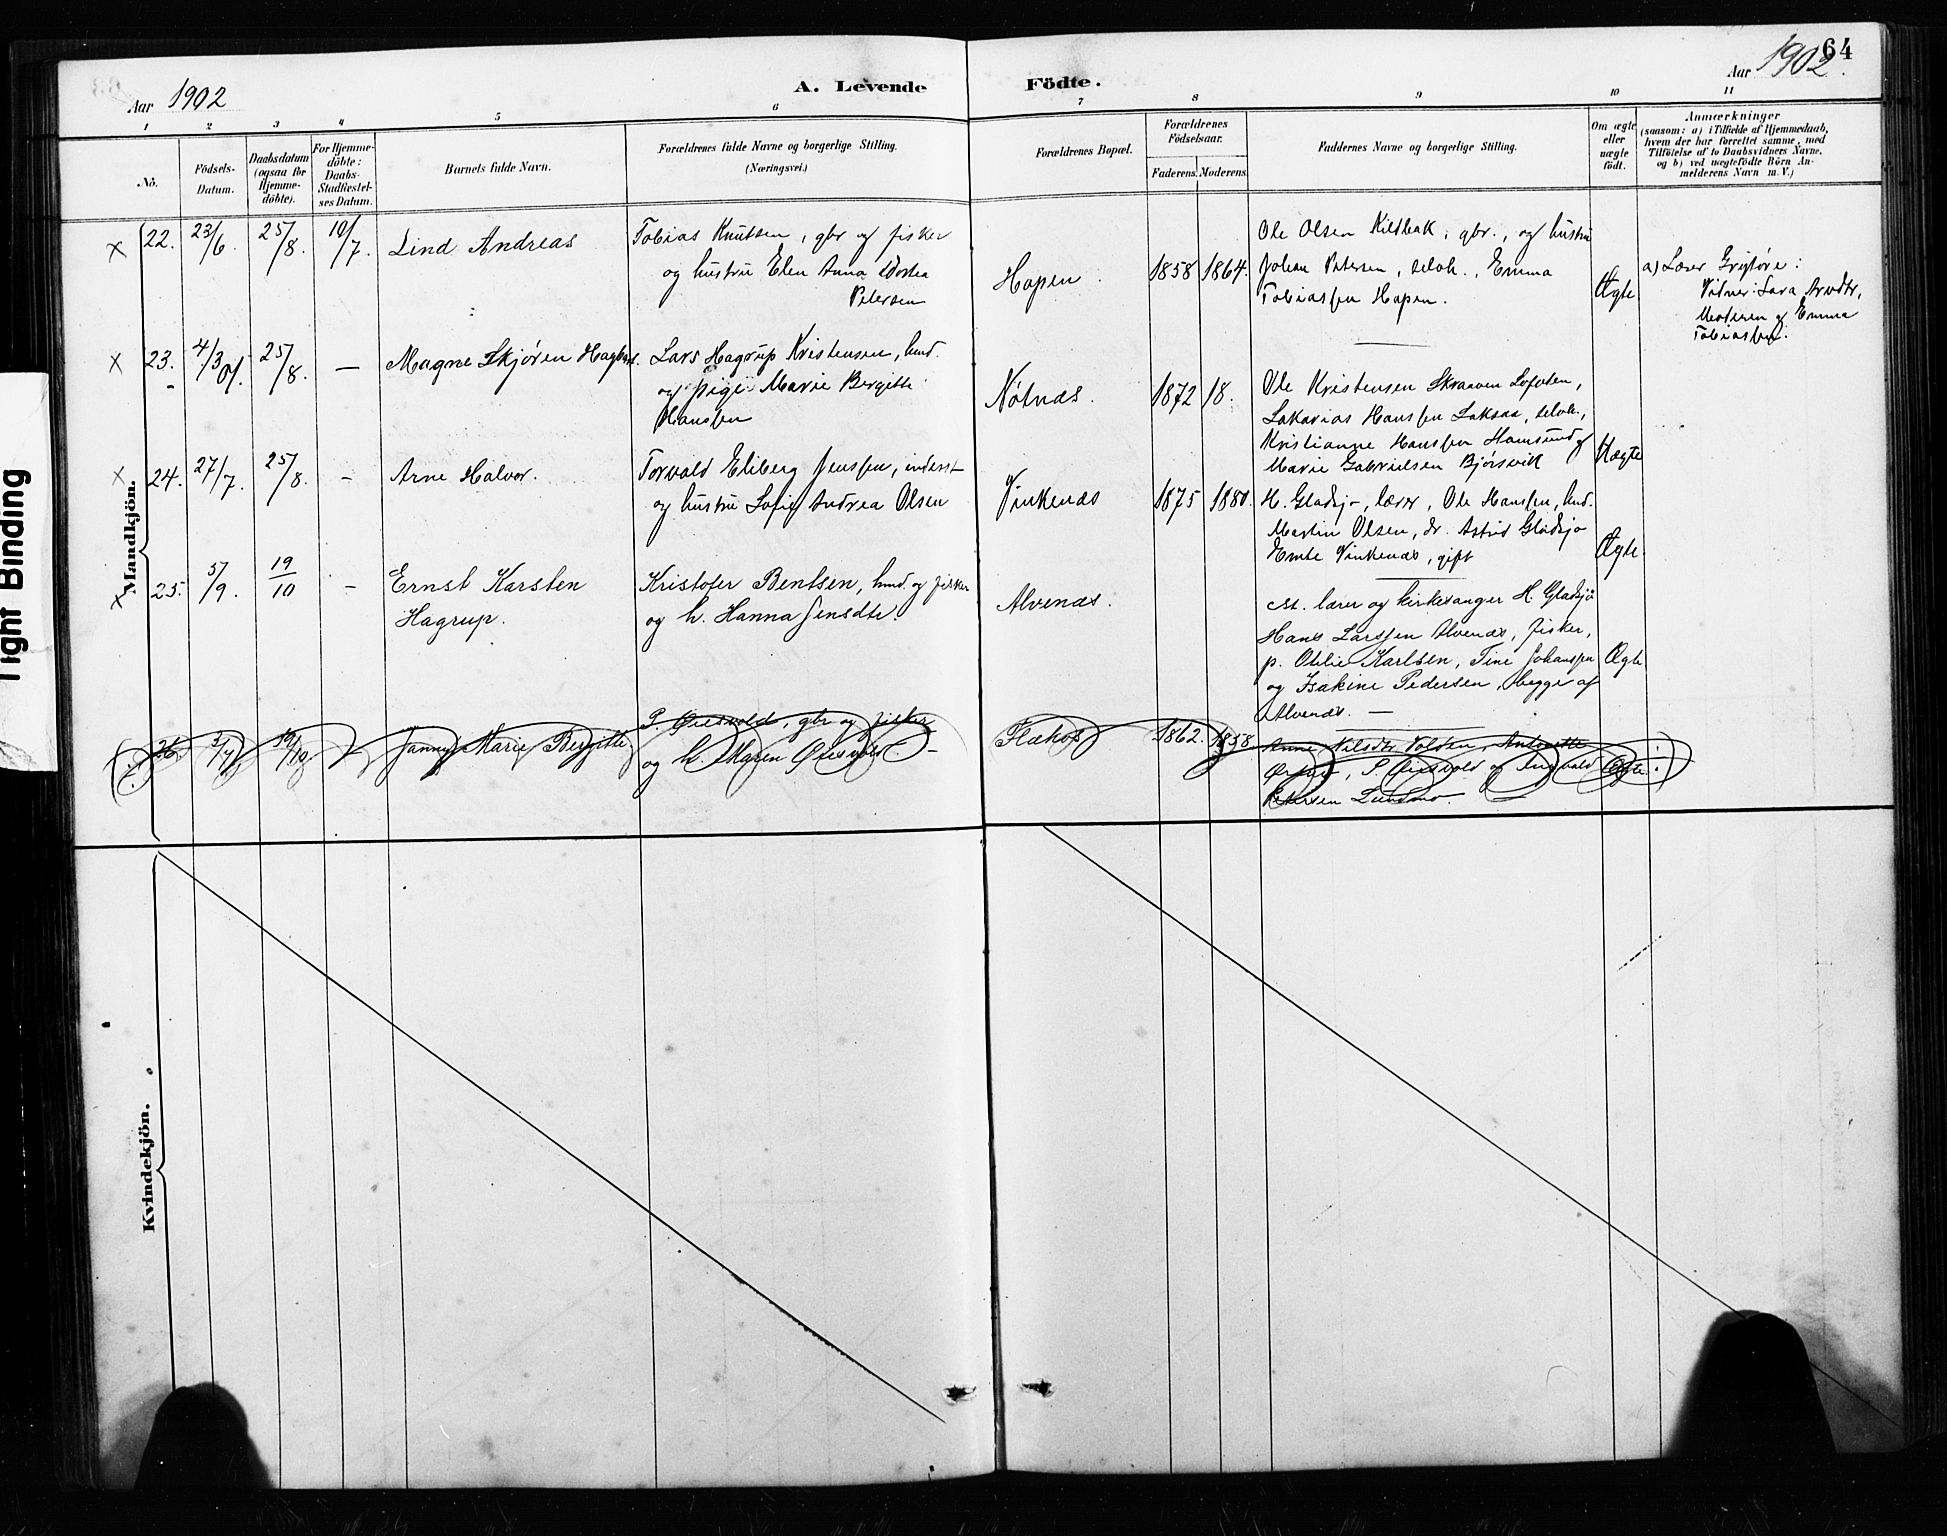 64
Aar 1902
A. Levende Födte.
Aar 1902.
1 2 3 4 5 6 7 8 9 10 11
No.
Födsels-
Datum.
Daabsdatum
(ogsaa for
Hjemme-
döbte).
For Hjemme-
döbte:
Daabs-
Stadfæstel-
ses Datum.
Barnets fulde Navn.
Forældrenes fulde Navne og borgerlige Stilling.
(Næringsvei.)
Forældrenes Bopæl.
Forældrenes
Födselsaar.
Faderens. Moderens.
Faddernes Navne og borgerlige Stilling.
Om ægte
eller
uægte
födt.
Anmærkninger
(saasom: a) i Tilfælde af Hjemmedaab,
hvem der har forrettet samme, med
Tilföielse af to Daabsvidners Navne,
og b) ved uægtefödte Börn An-
melderens Navn m. V.)
Mandkjön.
22. 23/6. 25/8. 10/7. Lind Andreas
Tobias Knutsen, gbr og fisker
og hustru Elen Anna Dortea
Petersen
Hopen.
1858 1864.
Ole Olsen Kildbak, gbr., og hustru
Johan Petersen, selvh., Emma
Tobiassen Hopen.
Ægte
a) Lærer Grytöre:
Vidner: Lava Arndtr,
Moderen og Emma
Tobiassen.
23. 4/3 01. 25/8. — Magne Skjøren Hagbart.
Lars Hagrup Kristensen, hmd.
og pige Marie Bergitte
Hanssen
Nötnæs.
1872 18.
Ole Kristensen Skraaven Lofoten,
Sakarias Hanssen Laksaa, selvh.,
Kristianne Hanssen Hamsund og
Marie Gabrielsen Bjørsvik
Uægte
24. 27/7. 25/8. - Arne Halvor.
Torvald Eliberg Jenssen, inderst
og hustru Sofie Andrea Olsen
Vinkenæs
1875 1880.
H. Gladsjø, lærer, Ole Hanssen, hmd.
Martin Olsen, dr. Astrid Gladsjø
Emte Vinkenæs, gift
Ægte
25. 5/9. 19/10 - Ernst Karsten
Hagrup.
Kristofer Bentsen, hmd. og fisker
og h. Hanna Jensdtr.
Alvenæs.
st. lærer og kirkesanger H. Gladsjø
Hans Larssen Alvenæs, fisker,
p. Otelie Karlsen, Tine Johanssen
og Isakine Pedersen, begge af
Alvenæs. —
Ægte
26. 3/7 19/10 Jenny Marie Bergitte
P. Qvesvold, gbr og fisker
og h. Maren Qvesvold
Flakop
1862. 1858
Anne Nilsdtr Volden, Antonette
P. Qvesvold og Ingvald
Petersen Lundmo.
Ægte
Kvindekjön.
Tight Binding